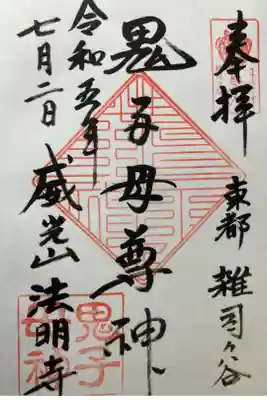 奉拝
東都 雑司ケ谷
鬼子母尊神
令和五年
七月二日
威光山 法明寺